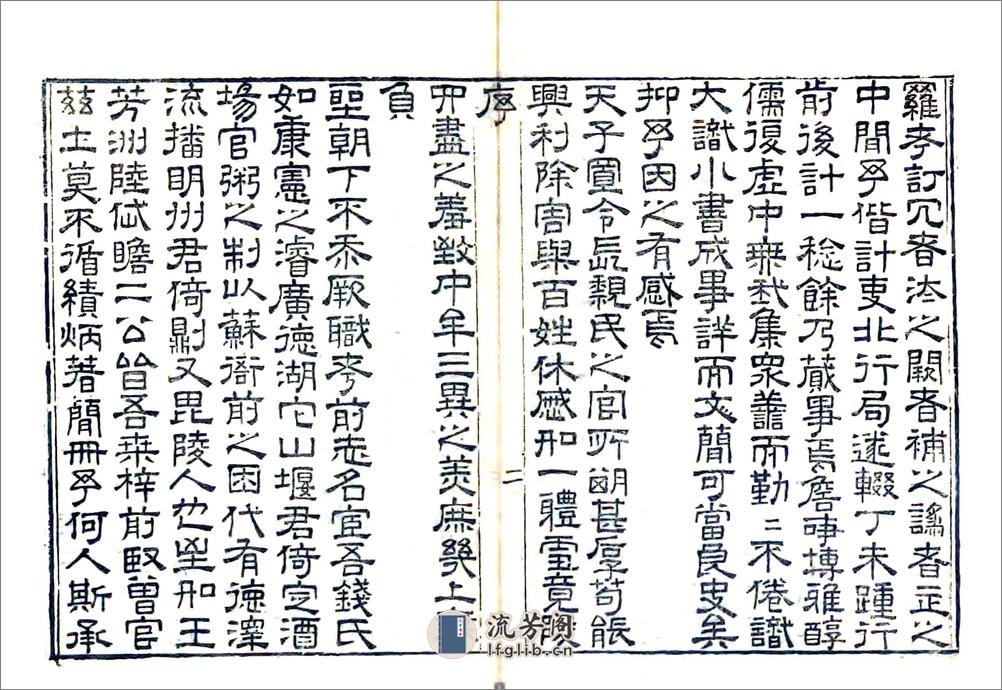 羅考訂冗者汰之闕者補之譌者正之
中間予偕計吏北行局遂輟丁未踵行
前後計一稔餘乃蕆事焉詹博雅醇
儒復虛中無我集衆譱而勤二不倦識
大識小書成事詳而文簡可當良史矣
抑予因之有感焉
天子置令長親民之官所關甚厚苟能
興利除害與百姓休慼如一體雪竟陵
序
二
卵盡之羞致中牟三異之美庶幾上不
負
聖朝下不忝厥職考前志名宦吾錢氏
如康憲之濬廣德湖它山堰君倚定酒
場官粥之制以蘇衙前之困代有德澤
流播明州君倚則又毘陵人也如王
芳洲陸岱瞻二公皆吾桒梓前臤曾官
茲土莫不循績炳著簡冊予何人斯承
流芳阁
lfglib.cn